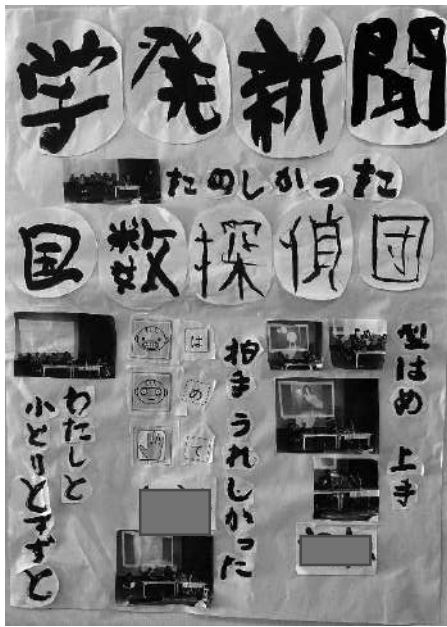 学発新聞
たのしかった
国数探偵団
型はめ 上手
拍手うれしかった
は
め
て
わたしと
小とりとすずと